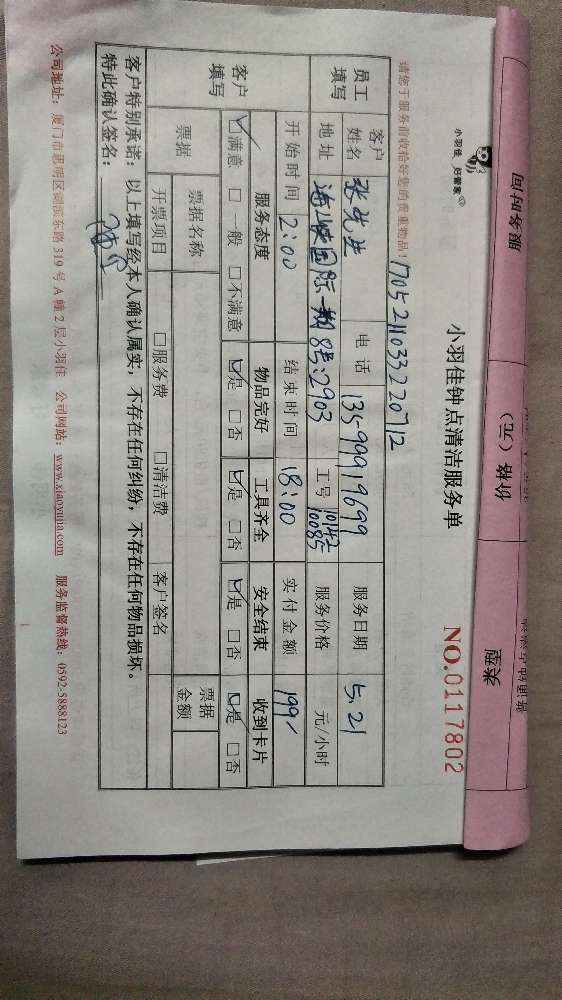 服务时间
价格（元）
类型
小羽佳 好管家
小羽佳钟点清洁服务单
NO.0117802
请您于服务前收拾好您的贵重物品！
1705211033220712
员工填写
客户姓名 张先生 电话 13599919699 服务日期 5.21
地址 海峡国际一期8号:2903 工号 10085 服务价格 元/小时
开始时间 2:00 结束时间 18:00 实付金额 199
客户填写
服务态度 物品完好 工具齐全 安全结束 收到卡片
☑满意 □一般 □不满意 ☑是 □否 ☑是 □否 ☑是 □否 ☑是 □否
票据 票据名称 票据金额
开票项目 □服务费 □清洁费 客户签名
客户特别承诺：以上填写经本人确认属实，不存在任何纠纷，不存在任何物品损坏。
特此确认签名：
公司地址：厦门市思明区湖滨东路319号A幢2层小羽佳 公司网站：www.xiaoyujia.com 服务监督热线：0592-5888123